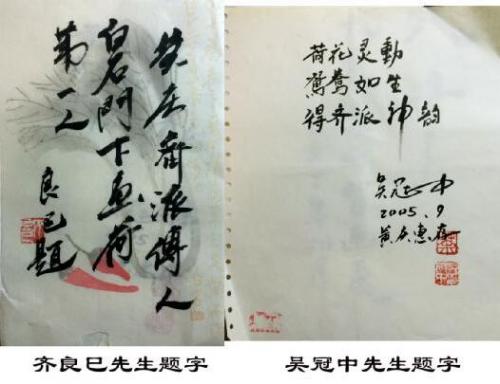 齊派傳人
白石門下画荷
第一人
良已题
荷花灵動
鸳鸯如生
得齐派神韵
吴冠中
2005.9
黄惠存
齐良巳先生题字
吴冠中先生题字